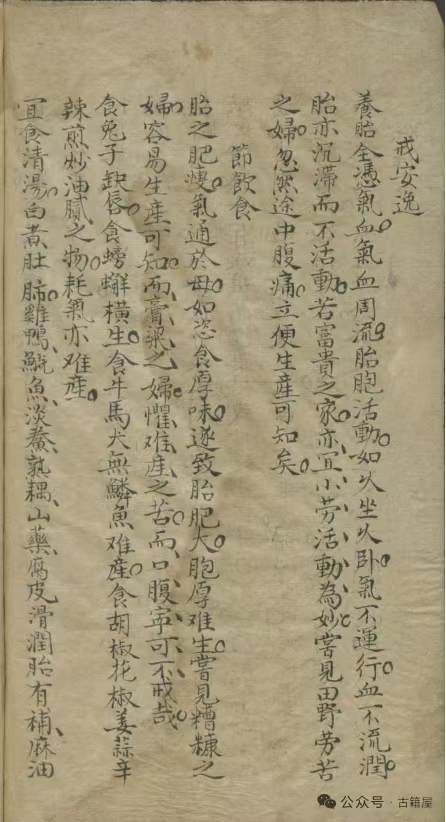 戒安逸
養胎全憑氣血氣血周流胎胞活動如久坐久卧氣不運行血不流潤
胎亦沉滞而不活動若富貴之家亦宜小劳活動為妙嘗見田野劳苦
之婦忽然途中腹痛立便生產可知矣
節飲食
胎之肥瘦氣通於母如恣食厚味遂致胎肥大胞厚难生嘗見糟糠之
婦容易生產可知而膏粱之婦懼难產之苦而口腹寧可不戒哉
食兔子缺唇食螃蟹橫生食牛馬犬無鱗魚难產食胡椒花椒姜蒜辛
辣煎炒油膩之物耗氣亦难產
宜食清湯白煮肚肺雞鴨魚淡養熟耦山藥腐皮滑潤胎有補麻油
公众号·古籍屋